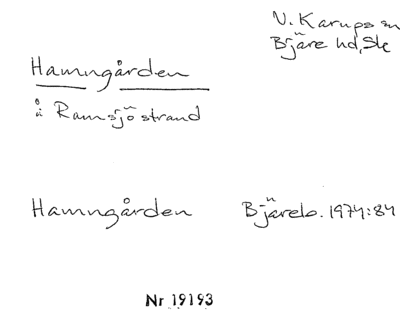 V. Karups sn
Bjäre hd, Sk
Hamngården
å Ramsjöstrand
Hamngården Bjäreb. 1974:84
Nr 19193